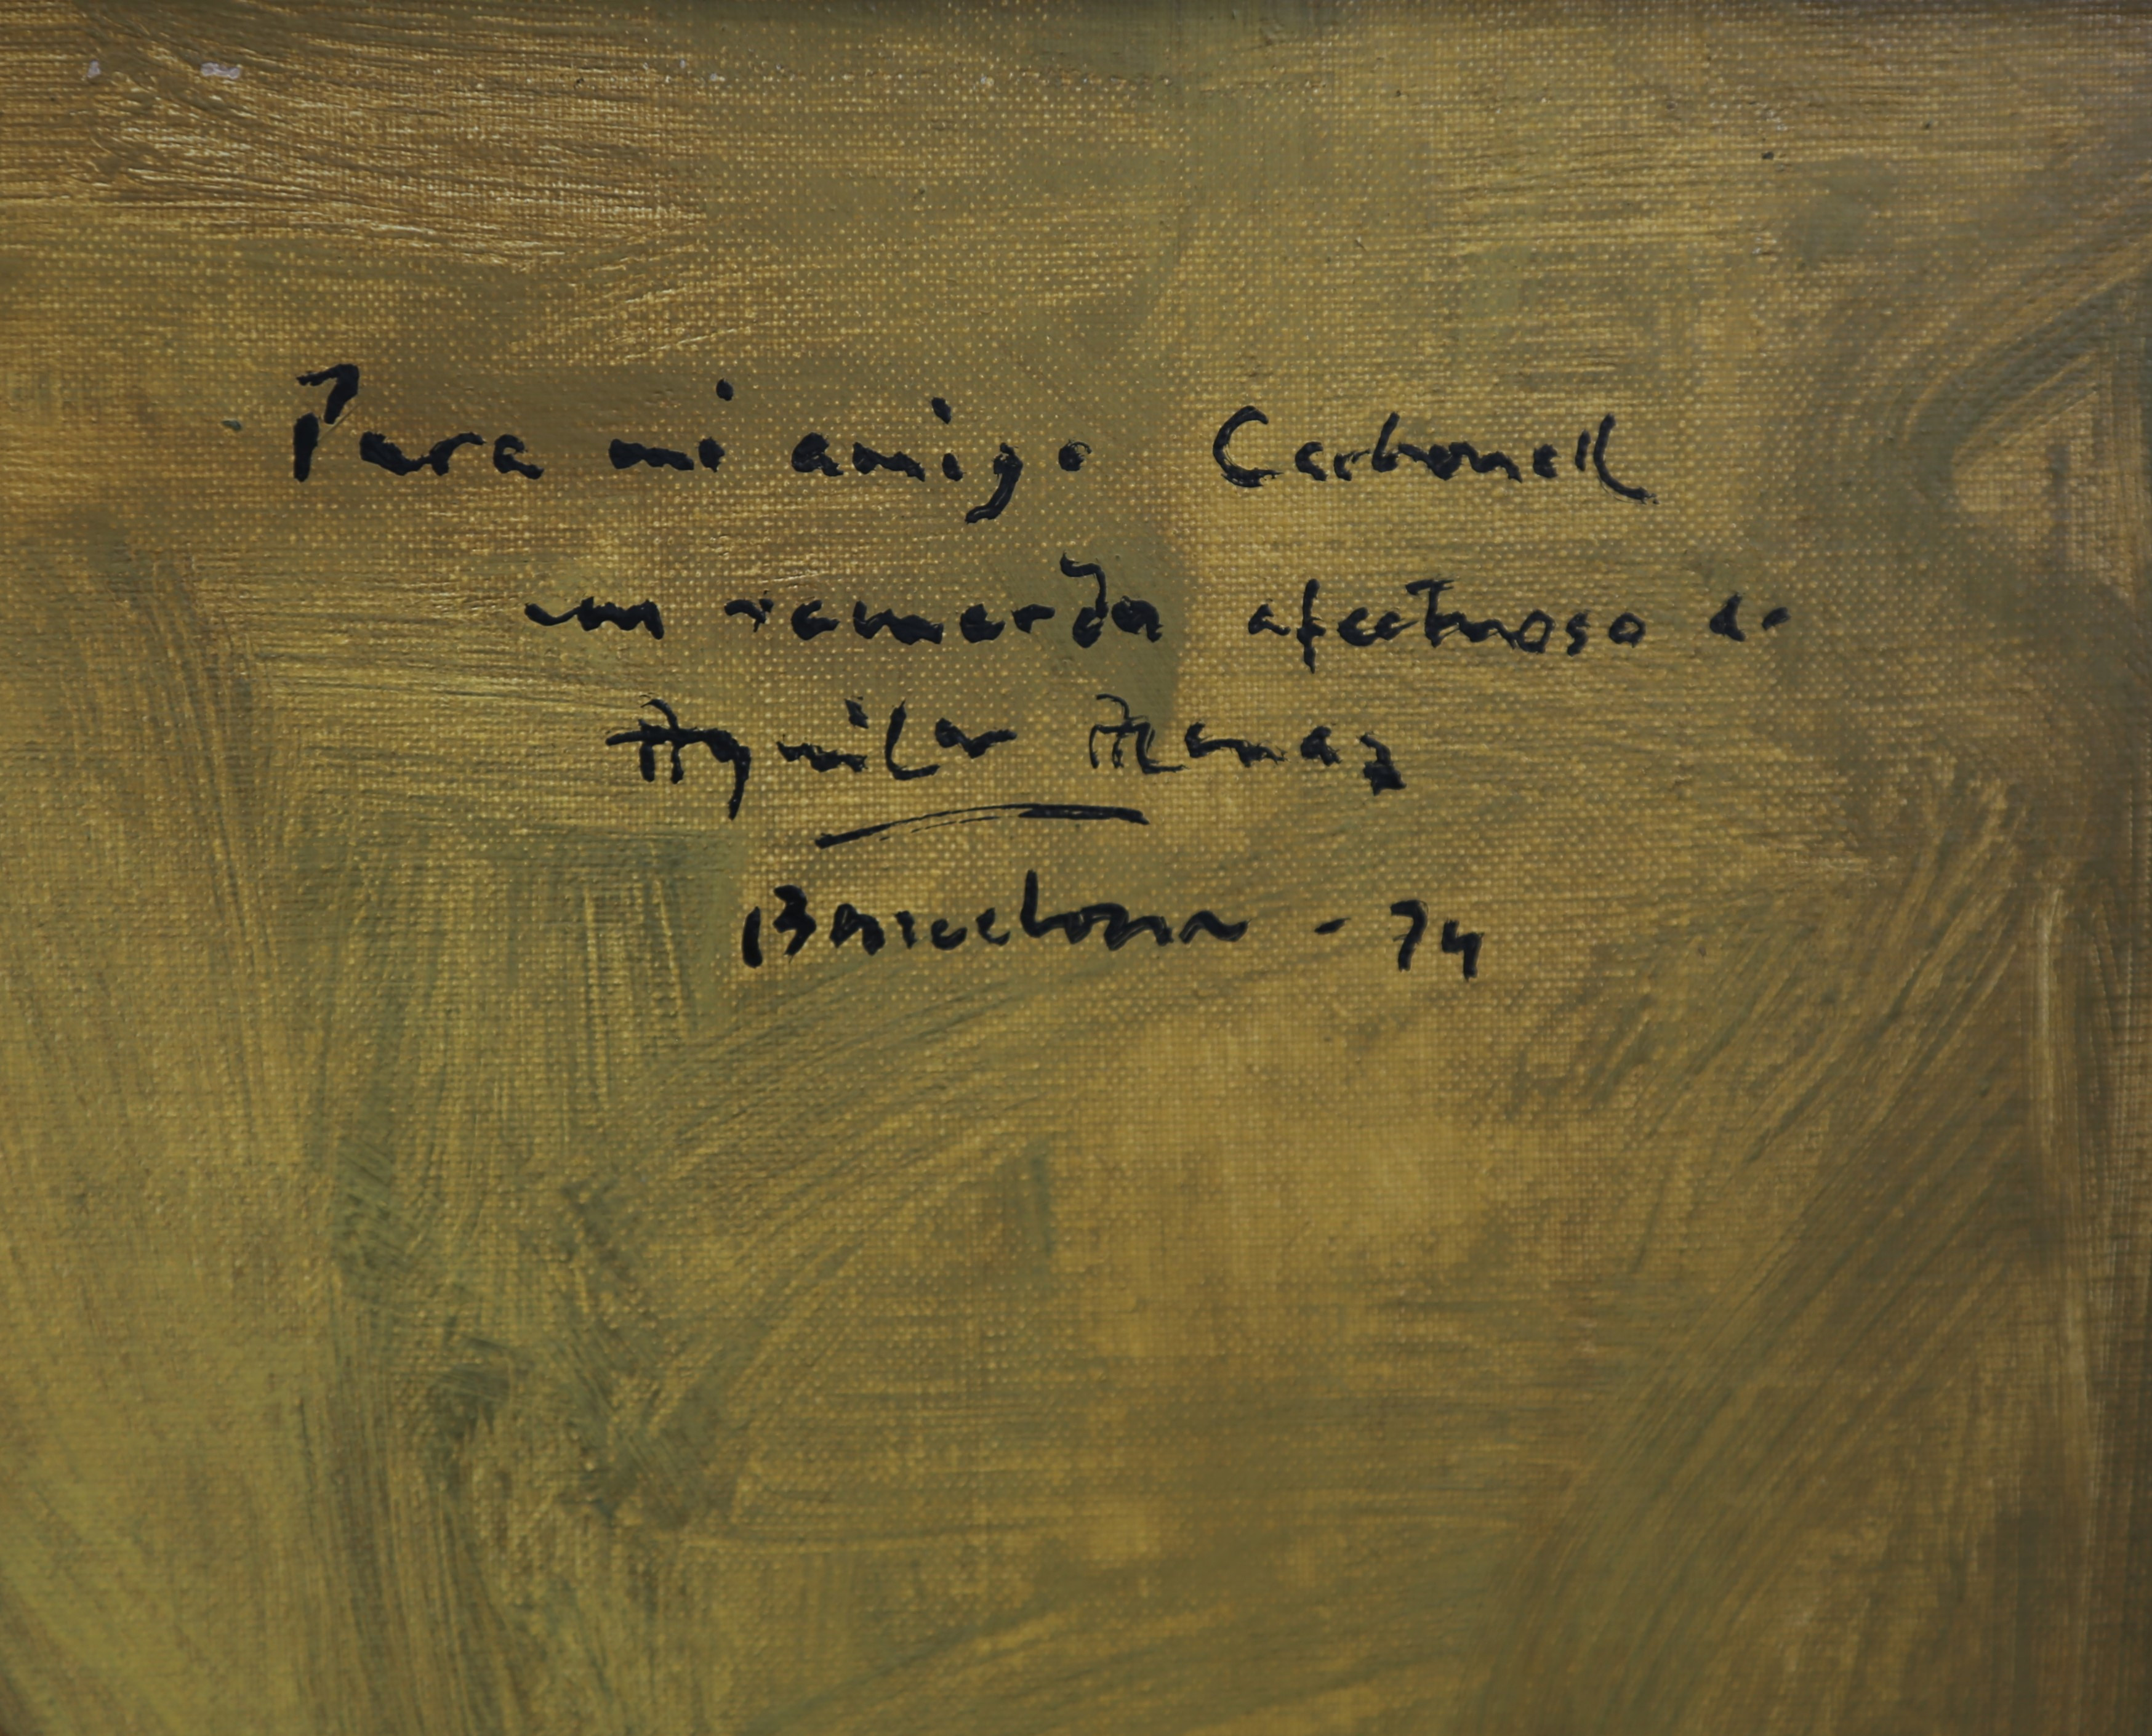 Para mi amigo Carbonell
un recuerdo afectuoso de
Aguilar Alcuaz
Barcelona - 74